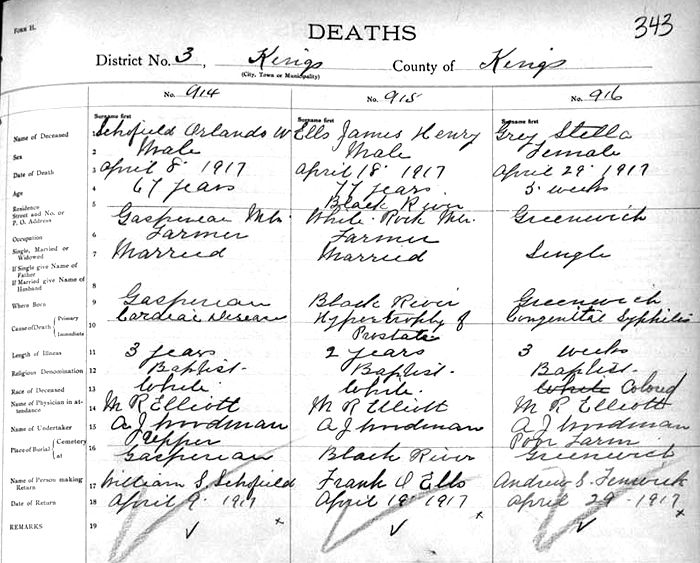 FORM H.
DEATHS
343
District No. 3, Kings County of Kings
(City, Town or Municipality)
No. 914 No. 915 No. 916
Surname first Surname first Surname first
Name of Deceased 1 Schofield Orlando W Ells James Henry Grey Stella
Sex 2 Male Male Female
Date of Death 3 April 8 1917 April 18 1917 April 29 1917
Age 4 67 years 77 years 5 weeks
Residence Street and No. or P. O. Address 5 Gaspereau Mtn. Black River White Rock Mtn. Greenwich
Occupation 6 Farmer Farmer
Single, Married or Widowed 7 Married Married Single
If Single give Name of Father
If Married give Name of Husband 8
Where Born 9 Gaspereau Black River Greenwich
Cause of Death { Primary Immediate 10 Cardiac Disease Hypertrophy of Prostate Congenital Syphilis
Length of Illness 11 3 years 2 years 3 weeks
Religious Denomination 12 Baptist. Baptist. Baptist.
Race of Deceased 13 White White. White Colored
Name of Physician in attendance 14 M R Elliott M R Elliott M R Elliott
Name of Undertaker 15 A J Woodman A J Woodman A J Woodman
Place of Burial { Cemetery at 16 Upper Gaspereau Black River Poor Farm Greenwich
Name of Person making Return 17 William S. Schofield Frank Ells Andrew S. Fenwick
Date of Return 18 April 9 1917 April 19 1917 April 29 1917
REMARKS 19